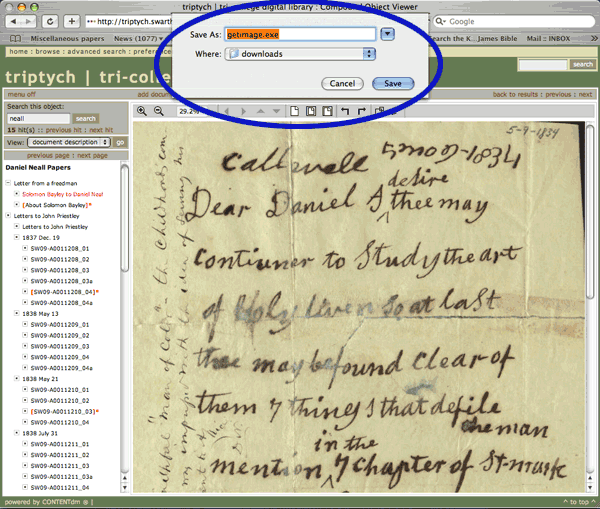 triptych | tri-college digital library : Compound Object Viewer
http://triptych.swarth
Google
Miscellaneous papers News (1077)
Search the K... James Bible Mine :: INBOX
Save As: getimage.exe
Where: downloads
Cancel Save
home : browse : advanced search : preferences
search
triptych | tri-colle
menu off
add docum
back to results : previous : next
Search this object:
neall search
15 hit(s) :: previous hit : next hit
View: document description go
previous page : next page
29.2%
Daniel Neall Papers
Letter from a freedman
Solomon Bayley to Daniel Neal
[About Solomon Bayley]*
Letters to John Priestley
Letters to John Priestley
1837 Dec. 19
SW09-A0011208_01
SW09-A0011208_02
SW09-A0011208_03
SW09-A0011208_03a
[SW09-A0011208_04]*
SW09-A0011208_04a
1838 May 13
SW09-A0011209_01
SW09-A0011209_02
SW09-A0011209_03
SW09-A0011209_04
SW09-A0011209_04a
1838 May 21
SW09-A0011210_01
SW09-A0011210_02
[SW09-A0011210_03]*
SW09-A0011210_04
1838 July 31
SW09-A0011211_01
SW09-A0011211_02
SW09-A0011211_03
SW09-A0011211_03a
SW09-A0011211_04
5-9-1834
Callwell 5mo9-1834
desire
Dear Daniel I thee may
contiuner to Study the art
of Holy liven so at last
thee may be found Clear of
them 7 things that defile
the man
in the
mention 7 Chapter of St-mark
powered by CONTENTdm ® |
^ to top ^